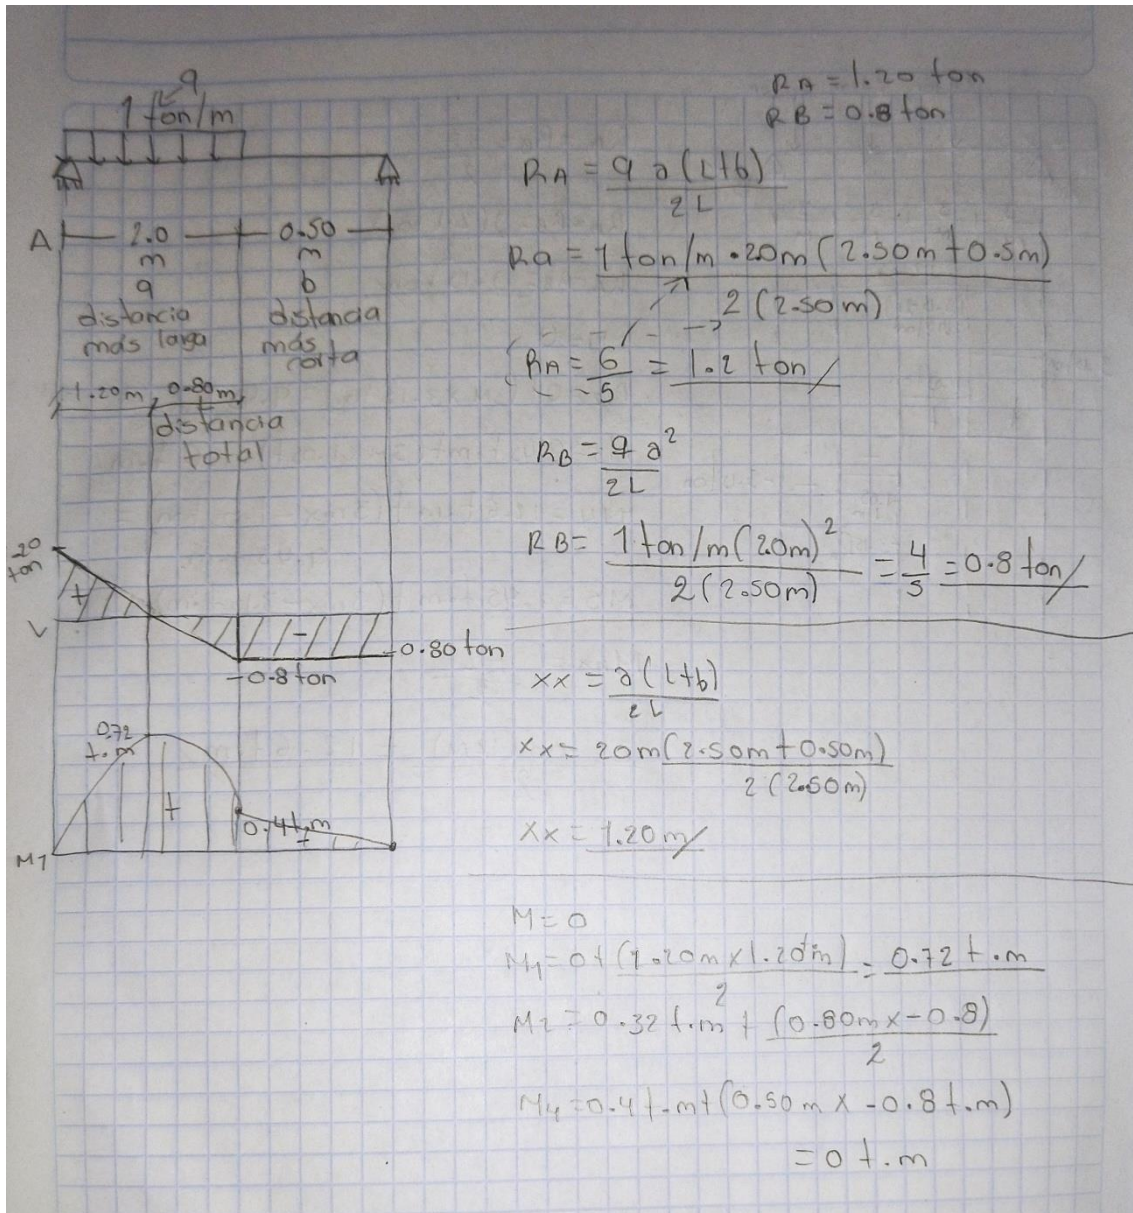 q
1 ton/m
A
2.0
m
a
distancia
más larga
0.50
m
b
distancia
más
corta
1.20m, 0.80m
distancia
total
20
ton
+
V
-
-0.8 ton
-0.80 ton
0.72
t.m
+
0.4t.m
+
M1
RA = 1.20 ton
RB = 0.8 ton
RA = q a (L+b)
2L
Ra = 1 ton/m · 20m (2.50m+0.5m)
2 (2.50m)
RA = 6 = 1.2 ton/
5
RB = q a²
2L
RB = 1 ton/m (20m)² = 4 = 0.8 ton/
2 (2.50m) 5
xx = a (L+b)
2L
xx = 20m (2.50m + 0.50m)
2 (2.50m)
xx = 1.20 m/
M = 0
M1 = 0 + (1.20m x 1.20m) = 0.72 t.m
2
M2 = 0.32 t.m + (0.80m x -0.8)
2
M4 = 0.4 t.m + (0.50m x -0.8 t.m)
= 0 t.m